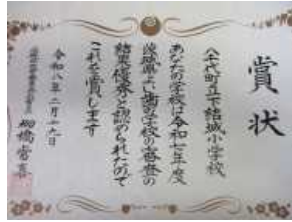 賞状
八千代町立下結城小学校
あなたの学校は令和七年度
茨城県よい歯の学校の審査の
結果優秀と認められたので
これを賞します
令和八年二月十九日